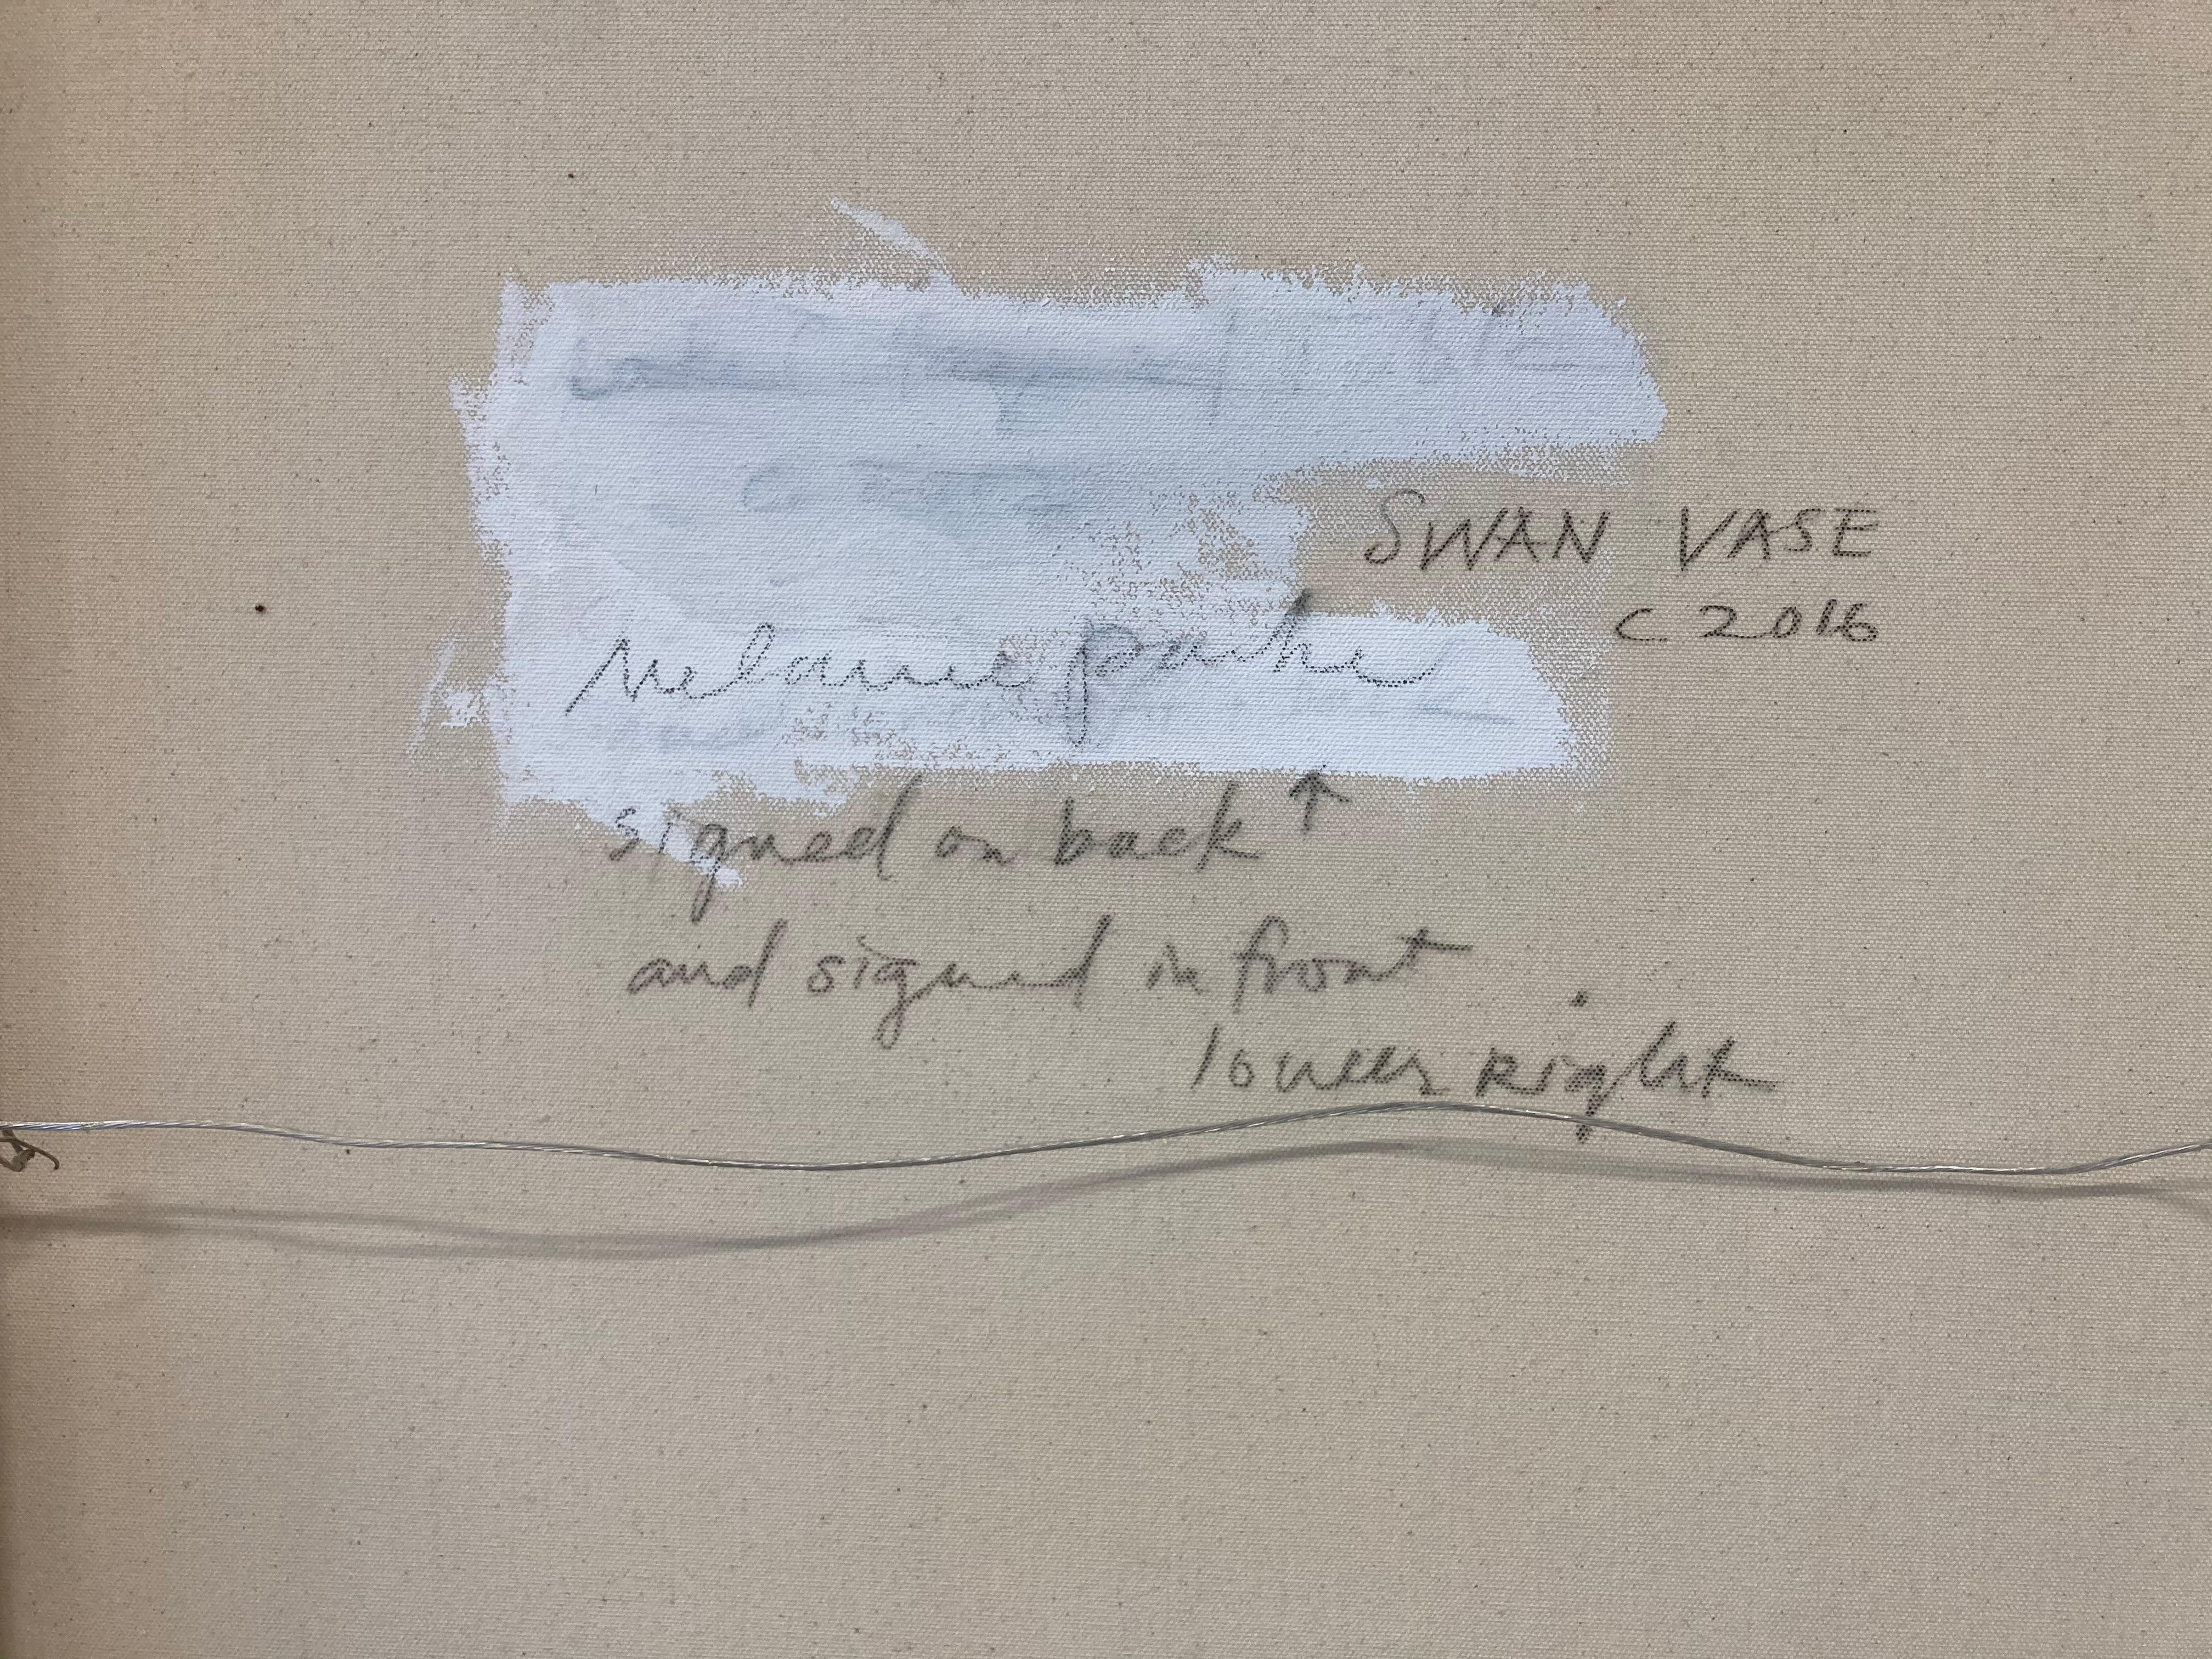 SWAN VASE
c 2016
Melanie Parke
signed on back ↑
and signed in front
lower Right